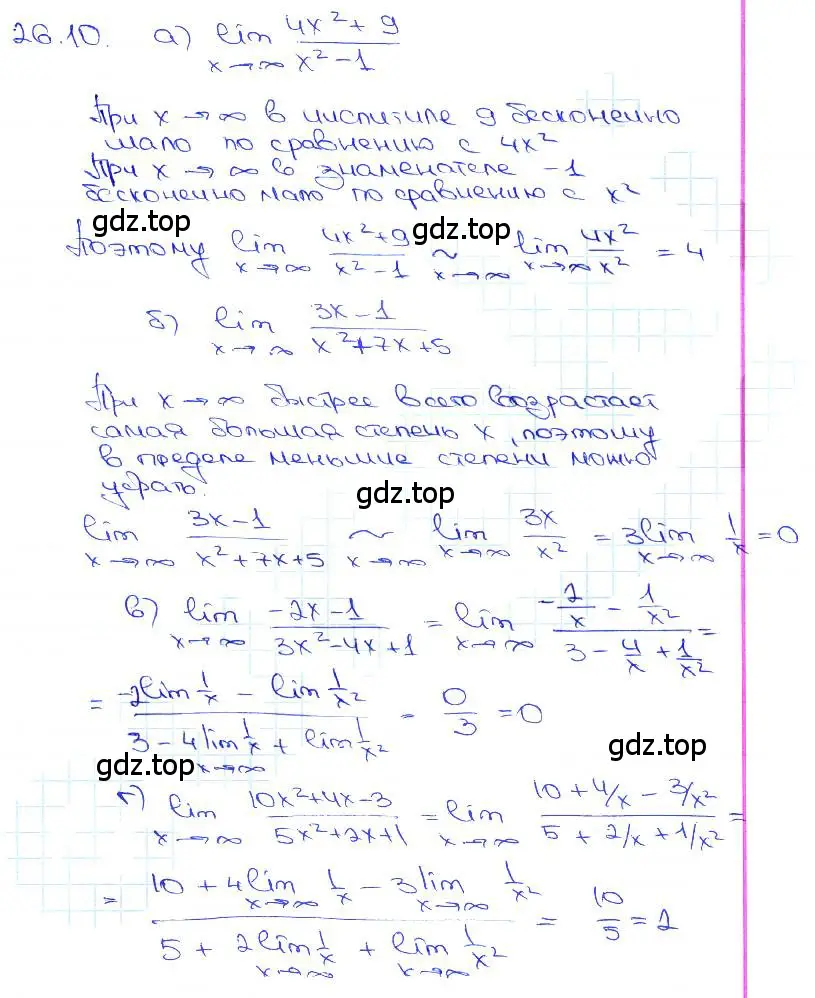 26.10. а) lim x→∞ (4x² + 9)/(x² - 1)
При x → ∞ в числителе 9 бесконечно
мало по сравнению с 4x²
При x → ∞ в знаменателе -1
бесконечно мало по сравнению с x²
gdz.top gdz.top
Поэтому lim x→∞ (4x²+9)/(x²-1) ~ lim x→∞ 4x²/x² = 4
б) lim x→∞ (3x-1)/(x²+7x+5)
При x → ∞ быстрее всего возрастает
самая большая степень x, поэтому
в пределе меньшие степени можно
убрать.
gdz.top
lim x→∞ (3x-1)/(x²+7x+5) ~ lim x→∞ 3x/x² = 3 lim x→∞ 1/x = 0
в) lim x→∞ (-2x-1)/(3x²-4x+1) = lim x→∞ (-2/x - 1/x²)/(3 - 4/x + 1/x²) =
= (-2 lim 1/x - lim 1/x²)/(3 - 4 lim x→∞ 1/x + lim 1/x²) - 0/3 = 0
gdz.top gdz.top
г) lim x→∞ (10x²+4x-3)/(5x²+2x+1) = lim x→∞ (10 + 4/x - 3/x²)/(5 + 2/x + 1/x²) =
= (10 + 4 lim x→∞ 1/x - 3 lim x→∞ 1/x²)/(5 + 2 lim x→∞ 1/x + lim x→∞ 1/x²) = 10/5 = 2